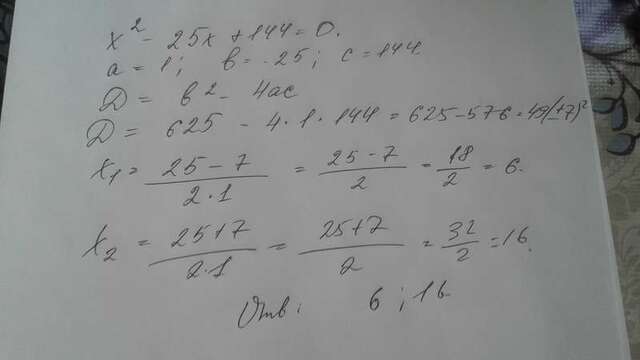 x² - 25x + 144 = 0.
a = 1; b = -25; c = 144
D = b² - 4ac
D = 625 - 4·1·144 = 625 - 576 = 49(±7)²
x₁ = (25 - 7)/(2·1) = (25 - 7)/2 = 18/2 = 6.
x₂ = (25 + 7)/(2·1) = (25 + 7)/2 = 32/2 = 16.
Отв: 6; 16